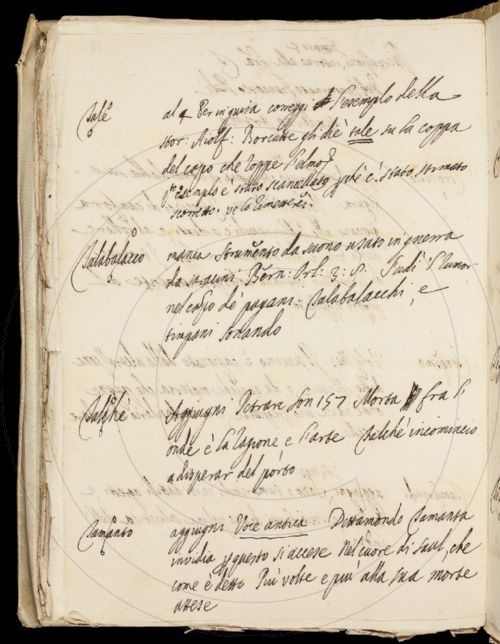 Tale
al 4 Per ingiuria correggi l'esempio della
stor: Aiolf: Borcutte gli diè tale su la coppa
del capo che roppe l'elmo
esempio è stato scancellato pche è stato stimato
scorretto.
Talabalacco
manca Strumento da suono usato in guerra
da saracini Bern: Orl: 3: Fudi l'rumor
nel campo de pagani Talabalacchi, e
timpani sonando
Talchè
Aggiugni Petrarc son 157 Morta fra l'
onde è la ragione e l'arte Talchè incomincio
a disperar del porto
Tamanto
aggiugni Voce antica Dittamondo Tamanta
invidia p questo si accese Nel cuore di Saul, che
come è detto Più volte e più alla sua morte
attese